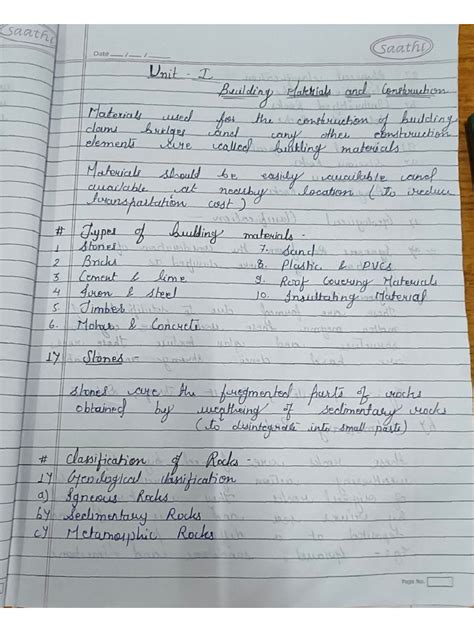 saathi
Date __/__/__
saathi
Unit - I
Building Materials and Construction
Materials used for the construction of building
dams bridges and any other construction
elements are called building materials
Materials should be easily available and
available at nearby location (to reduce
transpastation cost)
# Types of building materials -
1 Stones 7. Sand
2 Bricks 8. Plastic & PVCs
3 Cement & lime 9. Roof Covering Materials
4 Iron & Steel 10. Insultating Material
5 Timber
6. Motar & Concrete
1) Stones -
Stones are the fragmented parts of rocks
obtained by weathering of sedimentary rocks
(to disintegrate into small parts)
# Classification of Rocks -
1) Geological classification
a) Igneous Rocks
b) Sedimentary Rocks
c) Metamorphic Rocks
Page No.